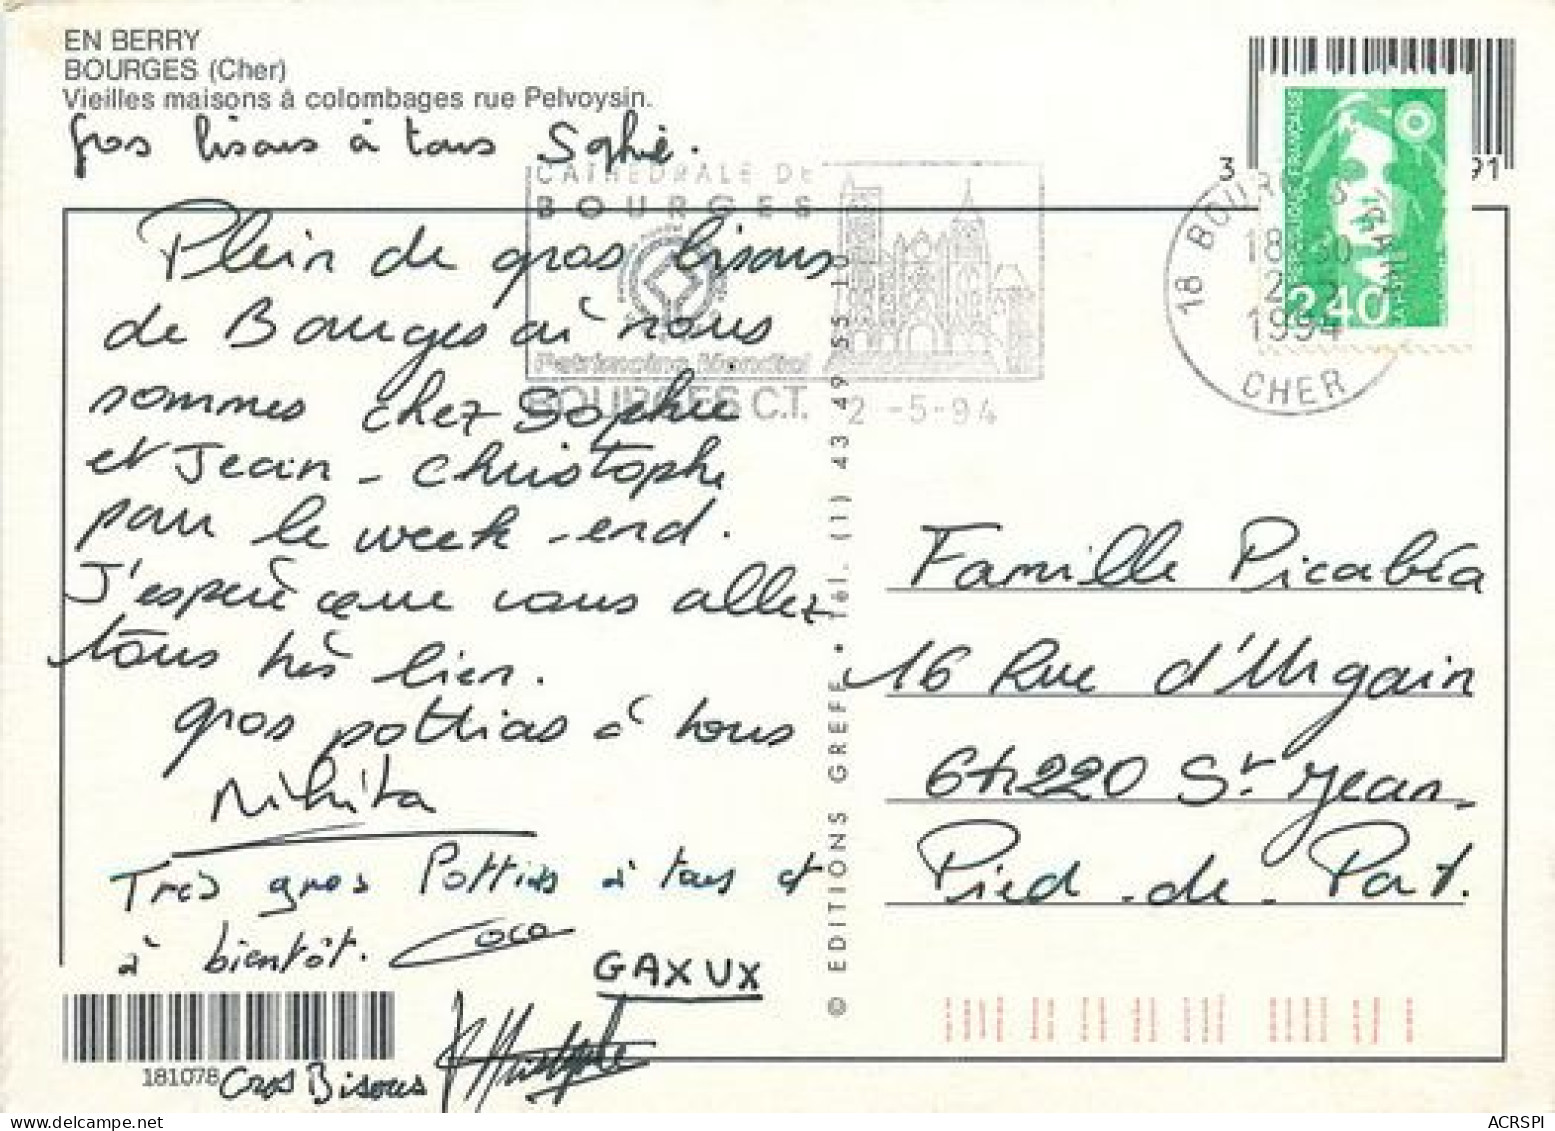 EN BERRY
BOURGES (Cher)
Vieilles maisons à colombages rue Pelvoysin.
Gros bisous à tous Sophie.
CATHEDRALE DE
BOURGES
Patrimoine Mondial
BOURGES C.T. 2-5-94
3
91
REPUBLIQUE FRANÇAISE
2,40
18 BOURGES
18 30
1994
CHER
Plein de gros bisous
de Bourges où nous
sommes chez Sophie
et Jean-Christophe
pour le week-end.
J'espère que vous allez
tous très bien.
gros pottias à tous
Nikita
Très gros Pottias à tous et
à bientôt. Coco
GAXUX
181078
Gros Bisous
JChristophe
© EDITIONS GREFF • Tél. (1) 43 49 55 10
Famille Picabéa
16 Rue d'Urgain
64220 St Jean-
Pied-de-Port.
ACRSPI